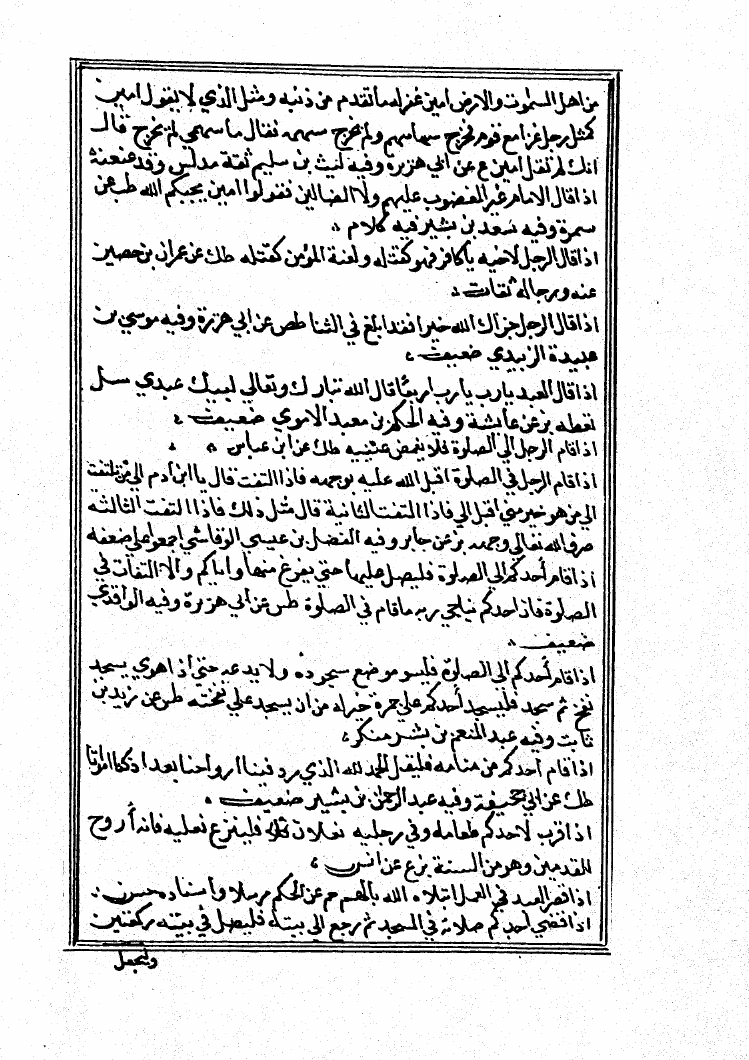 من اهل السموت والارض امين غفر له ما تقدم من ذنبه ومثل الذي لا يقول امين
كمثل رجل غزا مع قوم فخرج سهامهم ولم يخرج سهمه فقال ما سهمي لم يخرج قال
انك لم تقل امين ع عن ابي هريرة وفيه ليث بن سليم ثقة مدلس وقد عنعنه
اذا قال الامام غير المغضوب عليهم ولا الضالين فقولوا امين يجبكم الله طب عن
سمرة وفيه سعد بن بشير فيه كلام
اذا قال الرجل لاخيه يا كافر فهو كقتله ولعنة المؤمن كقتله طك عن عمران بن حصين
عنه ورجاله ثقات
اذا قال الرجل جزاك الله خيرا فقد ابلغ في الثنا طص عن ابي هريرة وفيه موسي بن
عبيدة الزبيدي ضعيف
اذا قال العبد يا رب يا رب اربعا قال الله تبارك وتعالي لبيك عبدي سل
تعطه بز عن عايشة وفيه الحكم بن معبد الاموي ضعيف
اذا قام الرجل الي الصلوة فلا يغمض عينيه طك عن ابن عباس
اذا قام الرجل في الصلوة اقبل الله عليه بوجهه فاذا التفت قال يا ابن ادم الي من تلتفت
الي من هو خير مني اقبل الي فاذا التفت الثانية قال مثل ذلك فاذا التفت الثالثه
صرف الله تعالي وجهه بز عن جابر وفيه الفضل بن عيسي الرقاشي اجمعوا علي ضعفه
اذا قام أحدكم الي الصلوة فليصل عليها حتي يفرغ منها واياكم والالتفات في
الصلوة فان احدكم يناجي ربه ما قام في الصلوة طس عن ابي هريرة وفيه الواقدي
ضعيف
اذا قام أحدكم الي الصلوة فليسو موضع سجوده ولا يدعه حتي اذا هوي يسجد
نفخ ثم سجد فليسجد أحدكم علي جمرة خير له من ان يسجد علي نفخته طس عن زيد بن
ثابت وفيه عبد المنعم بن بشر منكر
اذا قام أحدكم من منامه فليقل الحمد لله الذي رد فينا ارواحنا بعد اذ كنا امواتا
طك عن ابي جحيفة وفيه عبد الرحمن بن بشير ضعيف
اذا قرب لاحدكم طعامه وفي رجليه نعلان فلينزع نعليه فانه أروح
للقدمين وهو من السنة بز ع عن انس
اذا قصر العبد في العمل ابتلاه الله بالهم حم عن الحكم مرسلا وأسناده حسن
اذا قضي أحدكم صلاته في المسجد ثم رجع الي بيته فليصل في بيته ركعتين
وليجعل